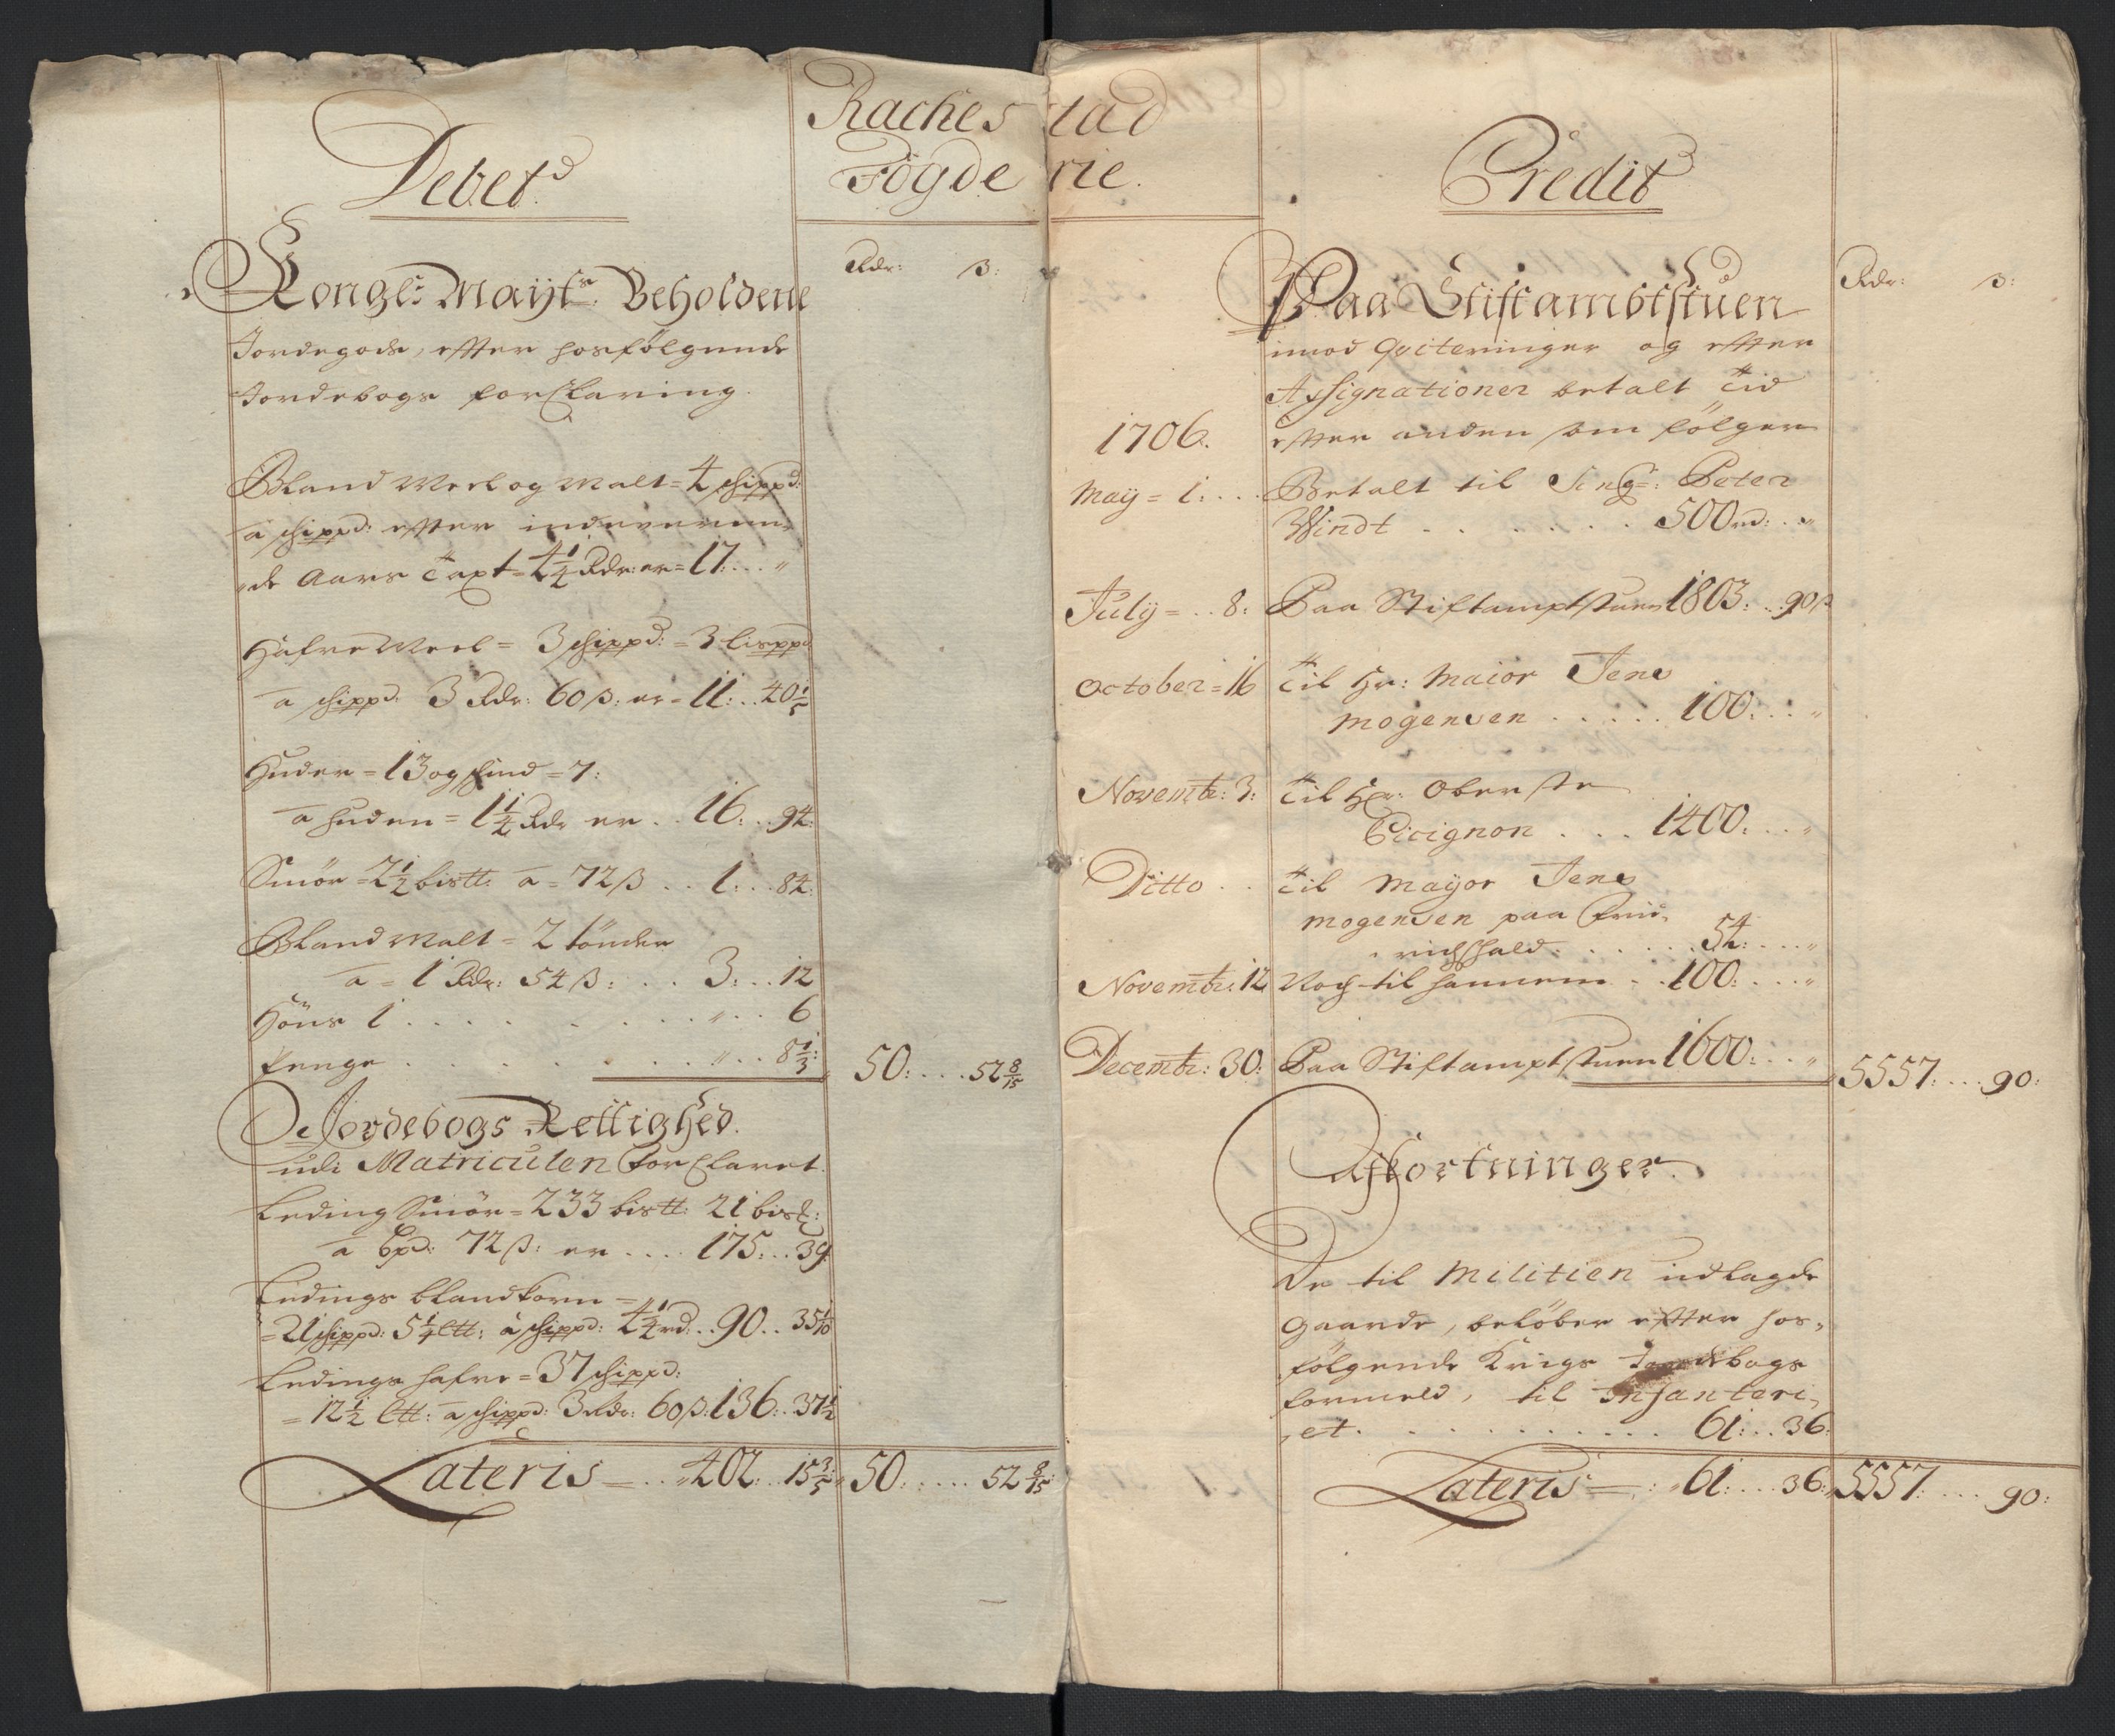 Rachestad
Fögderie.
Debet
Rdr: ß:
Kongl: Mayts: Beholdene
Jordegods, effter hosfölgende
Jordebogs forklaring.
Bland Meel og Malt = 4 schippd:
a schippd: effter indeværen-
de Aars Taxt = 4 1/4 Rdr: er = 17: .. "
Hafre Meel = 3 schippd: = 3 lisspd
a schippd. 3 Rdr: 60 ß: er = 11: .. 40 1/5
Huder = 13 og skind = 7:
a huden = 1 1/4 Rdr er .. 16: .. 94:
Smör = 2 1/2 bistt: a = 72 ß .. 1: .. 84:
Bland Malt = 2 tönder
a = 1 Rdr: 54 ß: ... 3: .. 12
Höns 1 ........ " .. 6
Penge ........ " .. 8 1/3: 50: .... 52 8/15
Jordebogs Rettighed.
udi Matriculen forklaret.
Leding Smör = 233 bistt: 21 bis
a bpd: 72 ß: er .... 175: .. 39
Ledings blandkorn =
= 21 schippd: 5 1/4 Ltt: á schippd: 4 1/4 rd: .. 90 .. 35 1/10
Ledings hafre = 37 schippd:
= 12 1/2 Ltt: a schippd: 3 Rdr: 60 ß: 136: .. 37 1/2
Lateris = .. " 402: .. 15 3/5 " 50: ..... 52 8/15
Credit
Rdr: ß:
Paa Stiftambtstuen
imod Qviteringer og effter
Assignationer betalt Tid
1706. effter anden som fölger
May = 1: ... Betalt til Sing: Peter
Windt ....... 500 rd: .. "
July = .. 8: Paa Stiftamptstuen 1803: .. 90 ß
October = 16 Til Hr: Maior Jens
Mogensen ..... 100: .. "
Novembr: 3: Til Hr: Oberste
Cicignon ... 1400: ... "
Ditto .. Til Mayor Jens
Mogensen paa Fride-
richshald ...... 54: ... "
Novembr: 12 Noch til hannem .. 100: ... "
Decembr: 30: Paa Stiftamptstuen 1600: .. " 5557: ... 90:
Affkortninger.
De til Militien udlagde
Gaarde, belöber effter hos-
fölgende Krigs Jordebogs
formeld, til Infanteri-
et ........... 61: .. 36:
Lateris = .: " 61: ... 36: " 5557: ... 90: